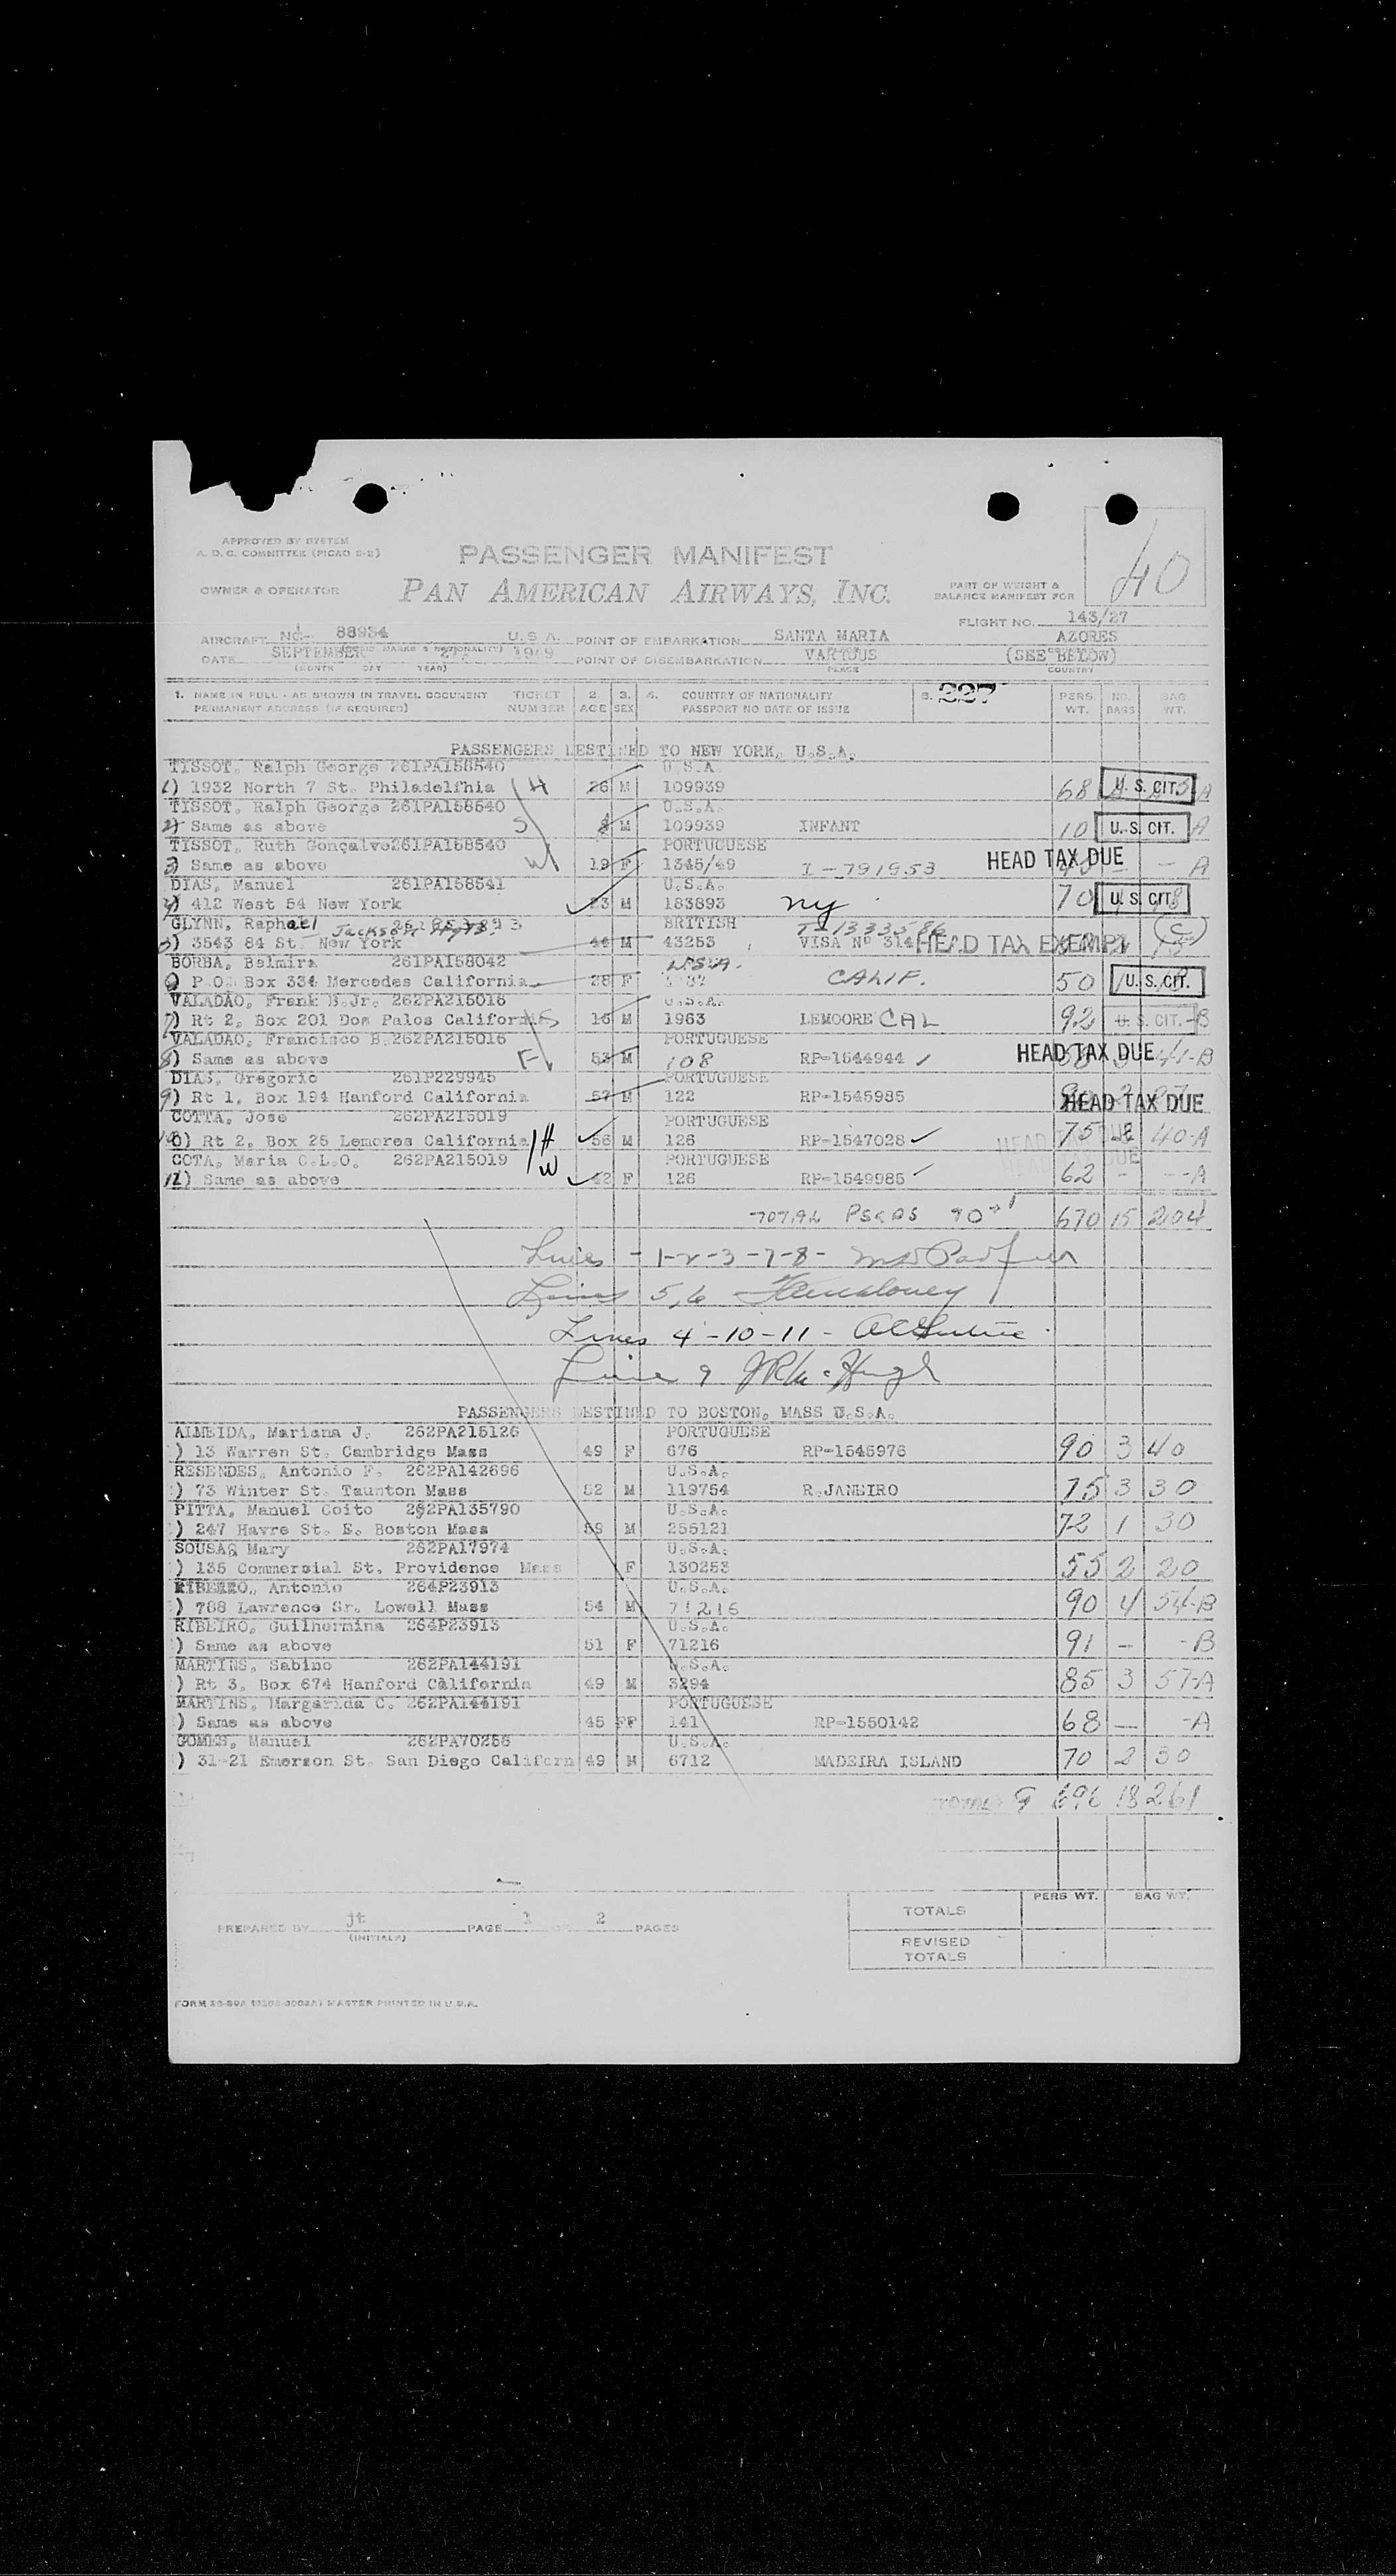 40
APPROVED BY SYSTEM
A. D. C. COMMITTEE (PICAO 2-2)
PASSENGER MANIFEST
OWNER & OPERATOR
PAN AMERICAN AIRWAYS, INC.
PART OF WEIGHT &
BALANCE MANIFEST FOR
FLIGHT NO. 143/27
AIRCRAFT NC- 88934 U. S. A. POINT OF EMBARKATION SANTA MARIA AZORES
DATE SEPTEMBER 1949 POINT OF DISEMBARKATION VARIOUS (SEE BELOW)
(MONTH DAY YEAR) PLACE COUNTRY
1. NAME IN FULL - AS SHOWN IN TRAVEL DOCUMENT TICKET 2. 3. 4. COUNTRY OF NATIONALITY 5. 227 PERS. NO. BAG
PERMANENT ADDRESS (IF REQUIRED) NUMBER AGE SEX PASSPORT NO DATE OF ISSUE WT. BAGS WT.
PASSENGERS DESTINED TO NEW YORK, U.S.A.
TISSOT, Ralph George 261PA158540 U.S.A.
1) 1932 North 7 St. Philadelfhia H 26 M 109939 68 U. S. CIT. A
TISSOT, Ralph George 261PA158540 U.S.A.
2) Same as above S M 109939 INFANT 10 U. S. CIT. A
TISSOT, Ruth Gonçalve261PA158540 PORTUGUESE
3) Same as above W 19 F 1345/49 I-791953 HEAD TAX DUE - A
DIAS, Manuel 261PA158541 U.S.A.
4) 412 West 54 New York 23 M 183893 ny 70 U. S. CIT.
GLYNN, Raphael Jackson Hgts. BRITISH
5) 3543 84 St. New York 44 M 43253 VISA Nº 314 HEAD TAX EXEMPT C
BORBA, Belmira 261PA158042 U.S.A.
6) P.O. Box 334 Mercedes California 28 F CALIF. 50 U. S. CIT.
VALADÃO, Frank B.Jr. 262PA215016 U.S.A.
7) Rt 2, Box 201 Dos Palos California S 16 M 1963 LEMOORE CAL 92 U. S. CIT. B
VALADÃO, Francisco B.262PA215016 PORTUGUESE
8) Same as above F 53 M 108 RP-1544944 HEAD TAX DUE 41-B
DIAS, Gregorio 261P229945 PORTUGUESE
9) Rt 1, Box 194 Hanford California 57 M 122 RP-1545985 HEAD TAX DUE
COTTA, Jose 262PA215019 PORTUGUESE
10) Rt 2, Box 25 Lemores California H 56 M 126 RP-1547028 HEAD TAX DUE 75 2 40-A
COTA, Maria C.L.O. 262PA215019 PORTUGUESE
11) Same as above W 42 F 126 RP-1549985 HEAD TAX DUE 62 - -A
670 15 204
Lines - 1-2-3-7-8-
Lines 5,6
Lines 4-10-11-
Line 9 JR McHugh
PASSENGERS DESTINED TO BOSTON, MASS U.S.A.
ALMEIDA, Mariana J. 262PA215126 PORTUGUESE
) 13 Warren St. Cambridge Mass 49 F 676 RP-1545976 90 3 40
RESENDES, Antonio F. 262PA142696 U.S.A.
) 73 Winter St. Taunton Mass 52 M 119754 R.JANEIRO 75 3 30
PITTA, Manuel Coito 262PA135790 U.S.A.
) 247 Havre St. E. Boston Mass 59 M 255121 72 1 30
SOUSA, Mary 262PA17974 U.S.A.
) 135 Commersial St. Providence Mass F 130253 55 2 20
RIBEIRO, Antonio 264P23913 U.S.A.
) 788 Lawrence Sr. Lowell Mass 54 M 71216 90 4 54-B
RIBEIRO, Guilhermina 264P23913 U.S.A.
) Same as above 51 F 71216 91 - -B
MARTINS, Sabino 262PA144191 U.S.A.
) Rt 3, Box 674 Hanford California 49 M 3294 85 3 57-A
MARTINS, Margarida C. 262PA144191 PORTUGUESE
) Same as above 45 FF 141 RP-1550142 68 - -A
GOMES, Manuel 262PA70256 U.S.A.
) 31-21 Emerson St. San Diego Californ 49 M 6712 MADEIRA ISLAND 70 2 30
TOTAL 9 696 18 261
PERS WT. BAG WT.
TOTALS
PREPARED BY jt PAGE 1 OF 2 PAGES
(INITIALS)
REVISED
TOTALS
MASTER PRINTED IN U.S.A.